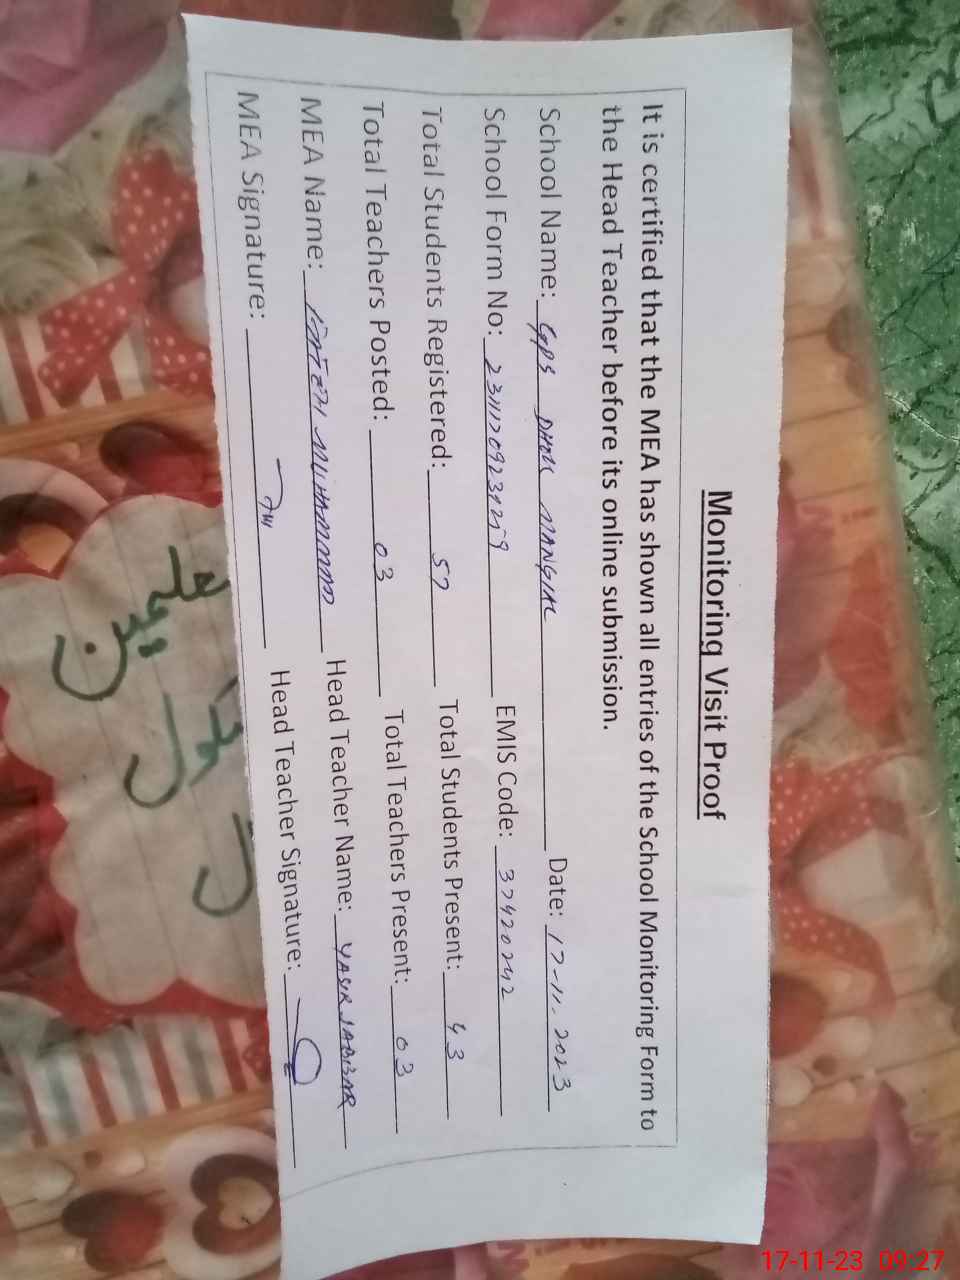 Monitoring Visit Proof
It is certified that the MEA has shown all entries of the School Monitoring Form to
the Head Teacher before its online submission.
School Name: GPS DHOK MANGIAL Date: 17-11-2023
School Form No: EMIS Code: 37420242
Total Students Registered: 57 Total Students Present: 43
Total Teachers Posted: 03 Total Teachers Present: 03
MEA Name: FATEH MUHAMMAD Head Teacher Name: YASIR JABBAR
MEA Signature: Head Teacher Signature:
17-11-23 09:27